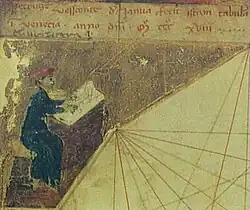 petrus vesconte d ianua fecit istam tabula
i venecia · anno dni · m ccc xviii